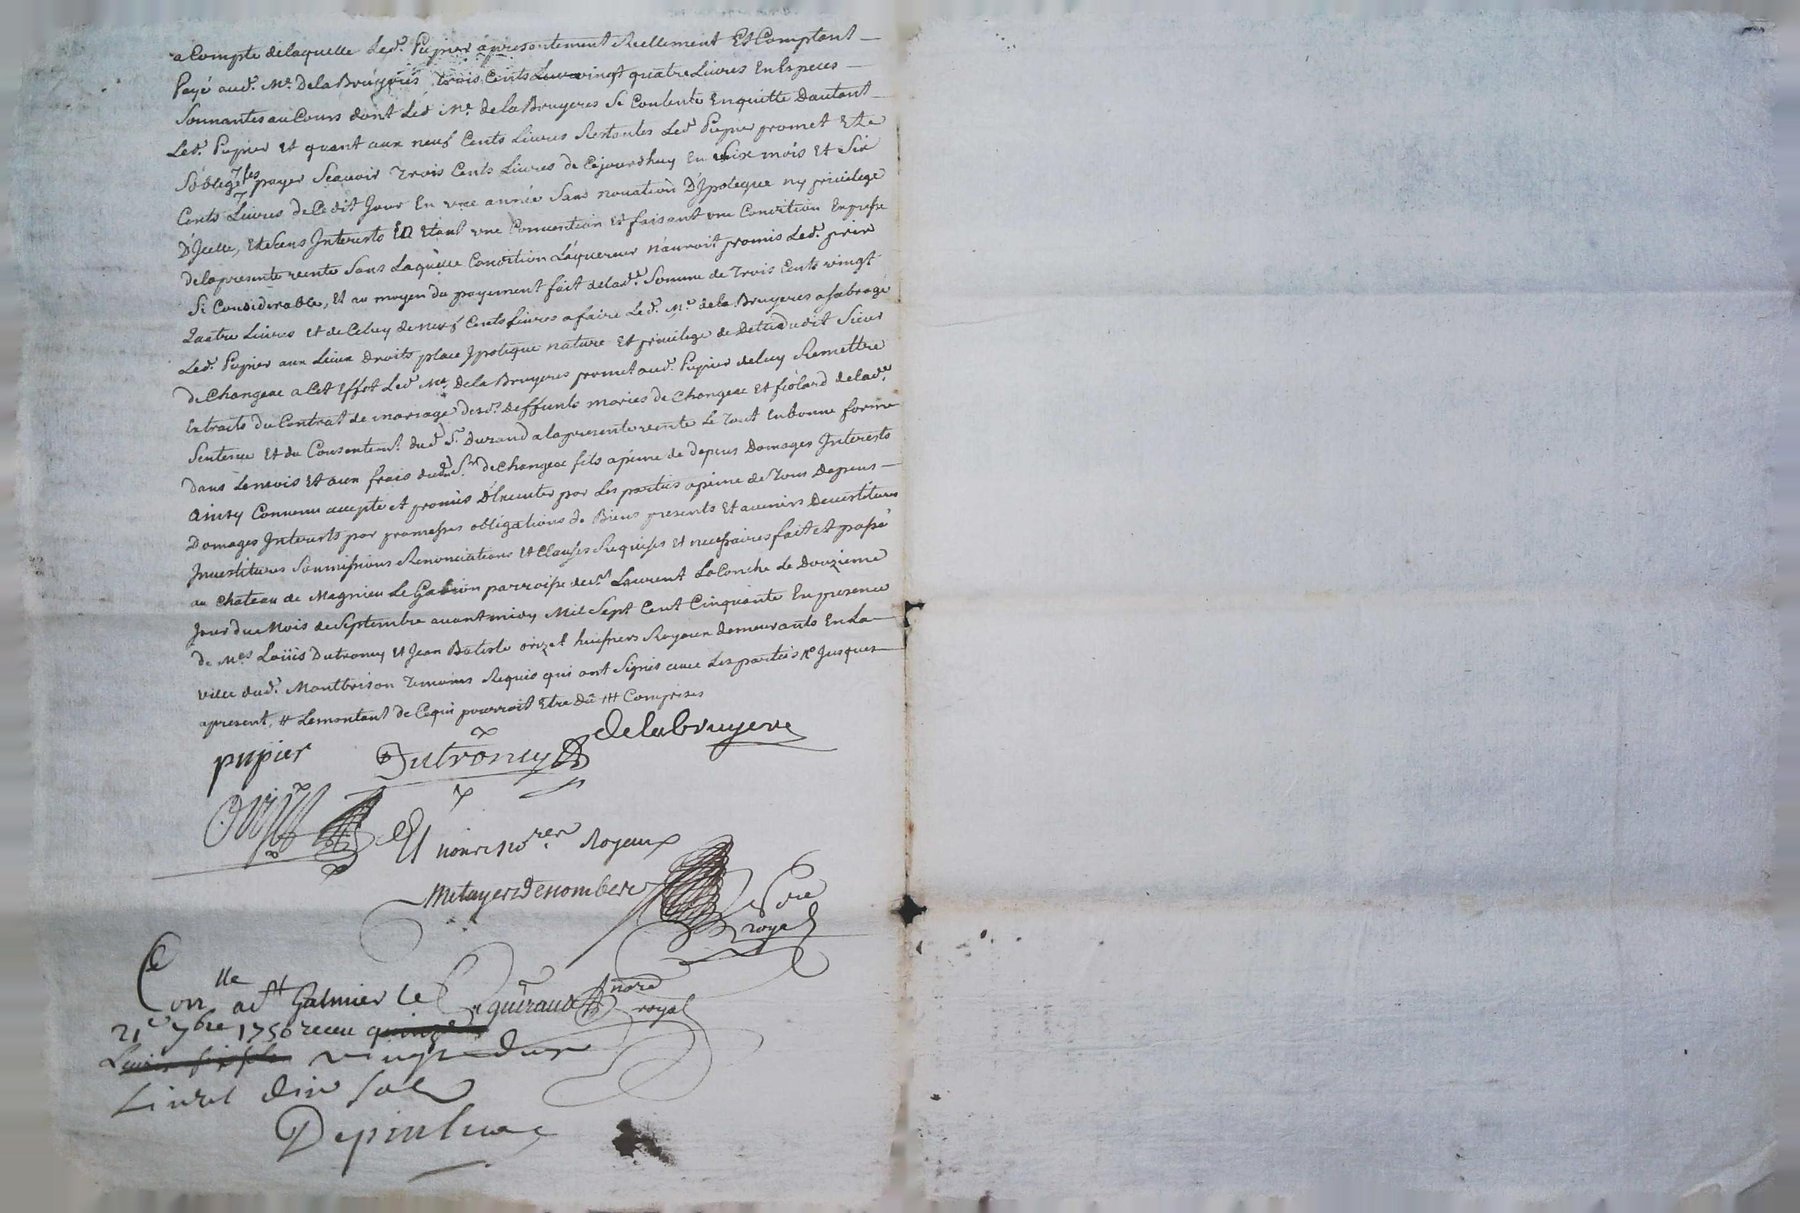 a Compte de laquelle Led. Pupier a presentement Reellement Et Comptant
Payé aud. Me. De la Bruyeres Trois Cents vingt quatre Livres En Especes
Sonnantes au Cours dont Led Me. de la Bruyeres Se Contente En quitte Dautant
Led. Pupier Et quant aux neuf Cents Livres Restantes Led Pupier promet Et
S'oblige les payer Scavoir Trois Cents Livres de Cejourdhuy En Six mois Et Six
Cents Livres de Cedit Jour En une année Sans novation D'Ipoteque ny privilege
D'Icelle, Et Sans Interests En Etant une Convention Et faisant une Condition Expresse
de la presente vente Sans Laquelle Condition L'aquereur n'auroit promis Led. prix
Si Considerable, Et au moyen du payement fait de lade. Somme de Trois Cents vingt
Quatre Livres et de Celuy de neuf Cents Livres a faire Led. Me. de la Bruyeres a Subrogé
Led. Pupier aux Lieux Droits place Ipoteque nature Et privilege de dudit Sieur
De Changeac a Cet Effet Led Me. De la Bruyeres promet aud. Pupier de luy Remettre
Extraits du Contrat de mariage desd. deffunts mariés de Changeac Et fiolard de lade.
Sentence Et du Consentemt. dud Sr. Durand a la presente vente Le Tout En bonne forme
dans Le mois Et aux frais dud. Sr. De Changeac fils a peine de Depens Domages Interests
Ainsy Convenu accepté et promis D'Executer par Les parties a peine de Tous Depens
Domages Interests par promesses obligations de Biens presents Et avenirs Devestitures
Investitures Soumissions Renonciations Et Clauses Requises Et necessaires fait et passé
au Chateau de Magnieu Le Gabion parroisse de St Laurent La Conche Le Douzieme
Jour du Mois de Septembre avant midy Mil Sept Cent Cinquante En presence
de Mes Loüis Dutroncy Et Jean Batiste orizet huissiers Royaux demeurants En La
ville dud. Montbrison Temoins Requis qui ont Signés avec Les parties Jusques
apresent, # Le montant de Cequi pourroit Etre Dû ### Comprises
pupier Dutroncy delabruyere
Et nore Royaux
Metayer Denombere
royal
Conlle a St Galmier le
21e 7bre 1750 receu vingt deux
Livres dix Sols